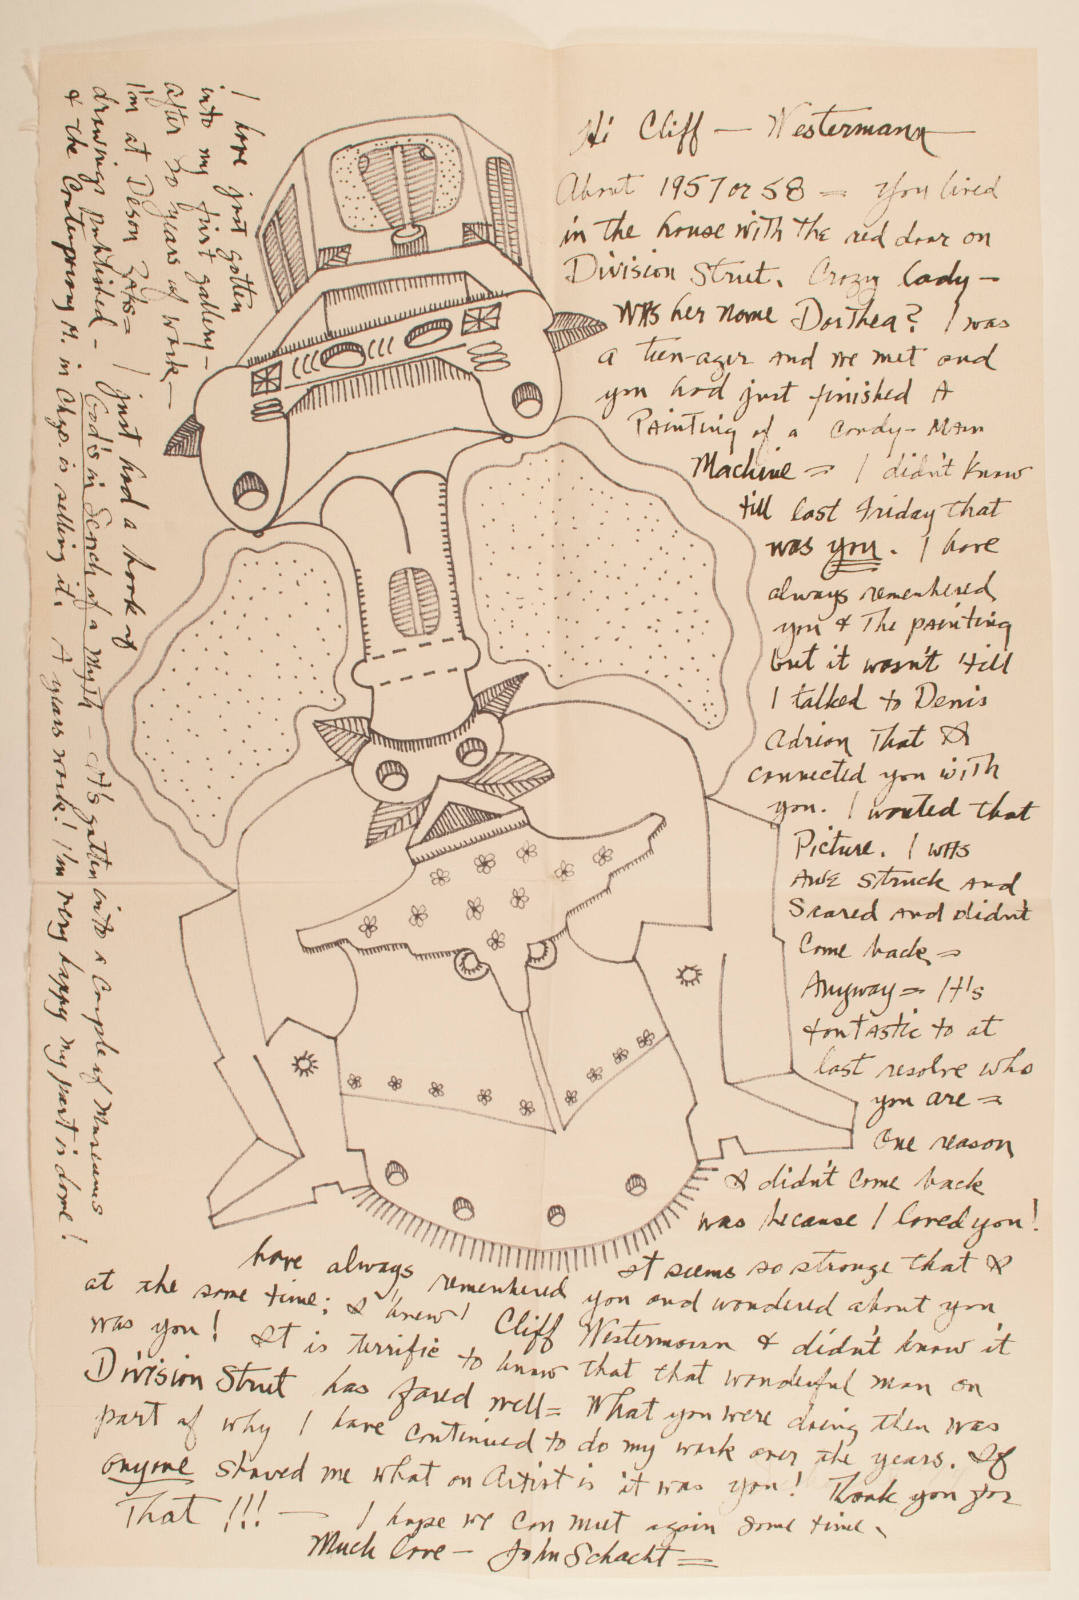 Hi Cliff — Westermann —
About 1957 or 58 = you lived
in the house with the red door on
Division Street. Crazy lady —
WAS her name Dorthea? I was
a teen-ager and we met and
you had just finished A
PAinting of a Candy-MAN
Machine = I didn't know
till last Friday that
was you. I have
always remembered
you & The pAinting
but it wasn't till
I talked to Denis
Adrian That I
connected you with
you. I wanted that
Picture. I WAS
AWE Struck and
Scared and didn't
Come back =
Anyway = It's
fantastic to at
last resolve who
you are =
One reason
I didn't Come back
was because I loved you!
It seems so strange that I
have always remembered you and wondered about you
at the same time; I knew Cliff Westermann & didn't know it
was you! It is terrific to know that that wonderful man on
Division Street has fared well = What you were doing then was
part of why I have continued to do my work over the years. If
anyone showed me what an Artist is it was you! Thank you for
That!!! — I hope we can meet again some time.
Much Love — John Schacht =
I have just gotten
into my first gallery —
after 20 years of work —
I'm at Deson Zaks = I just had a book of
drawings published — God's in Serch of a Myth — It's gotten into a Couple of Museums
& the Contemporary M. in Chgo. is selling it. A years work! I'm very happy my part is done!